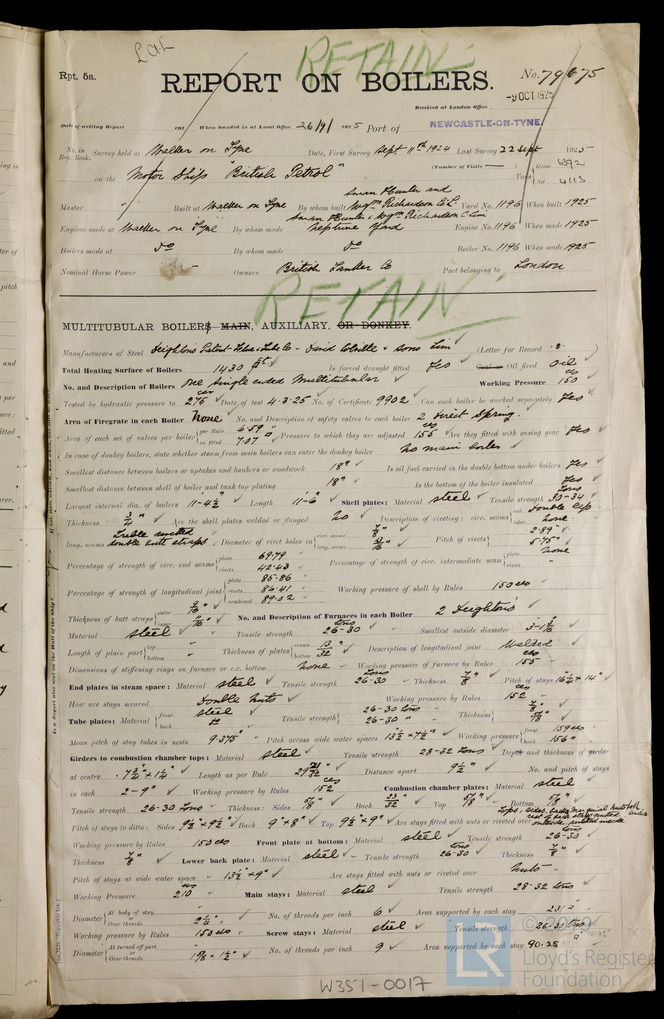 Lal
RETAIN
Rpt. 5a.
REPORT ON BOILERS.
No. 79675
-9 OCT 1925
Received at London Office
Date of writing Report 192 When handed in at Local Office 26/9/ 1925 Port of NEWCASTLE-ON-TYNE
No. in Reg. Book. Survey held at Walker on Tyne Date, First Survey Sept 11th 1924 Last Survey 22 Sept 1925
(Number of Visits —)
on the Motor Ship "British Petrol" Tons Gross 6892 Net 4113
Master Built at Walker on Tyne By whom built Swan Hunter and Wgm. Richardson Co L. Yard No. 1196 When built 1925
Engines made at Walker on Tyne By whom made Swan Hunter & Wgm. Richardson C Lim Neptune Yard Engine No. 1196 When made 1925
Boilers made at Do By whom made Do Boiler No. 1196 When made 1925
Nominal Horse Power - Owners British Tanker Co Port belonging to London
RETAIN
MULTITUBULAR BOILERS MAIN, AUXILIARY, OR DONKEY.
Manufacturers of Steel Deightons Patent Flue & Tube Co - David Colville & Sons Lim (Letter for Record S)
Total Heating Surface of Boilers 1430 ft Is forced draught fitted Yes Oil fired Oil
No. and Description of Boilers One single ended Multitubular Working Pressure 150 lbs
Tested by hydraulic pressure to 275 lbs Date of test 4-3-25 No. of Certificate 9902 Can each boiler be worked separately Yes
Area of Firegrate in each Boiler None No. and Description of safety valves to each boiler 2 direct spring.
Area of each set of valves per boiler per Rule 6.59 as fitted 7.07 Pressure to which they are adjusted 155 lbs Are they fitted with easing gear Yes
In case of donkey boilers, state whether steam from main boilers can enter the donkey boiler No main boiler
Smallest distance between boilers or uptakes and bunkers or woodwork 18" Is oil fuel carried in the double bottom under boilers Yes
Smallest distance between shell of boiler and tank top plating 18" Is the bottom of the boiler insulated Yes
Largest internal dia. of boilers 11-4½ Length 11-6 Shell plates: Material Steel Tensile strength 30-34 tons
Thickness ¾" Are the shell plates welded or flanged No Description of riveting: circ. seams end Double lap inter. None
long. seams Treble riveted double butt straps Diameter of rivet holes in circ. seams long. seams Pitch of rivets 2.89" 5.75"
Percentage of strength of circ. end seams plate 69.79 rivets 42.43 Percentage of strength of circ. intermediate seam plate None rivets
Percentage of strength of longitudinal joint plate 85.86 rivets 86.41 combined 89.02 Working pressure of shell by Rules 150 lbs
Thickness of butt straps outer inner No. and Description of Furnaces in each Boiler 2 Deightons
Material Steel Tensile strength 26-30 tons Smallest outside diameter
Length of plain part top bottom Thickness of plates crown bottom Description of longitudinal joint Welded
Dimensions of stiffening rings on furnace or c.c. bottom None Working pressure of furnace by Rules 155 lbs
End plates in steam space: Material Steel Tensile strength 26-30 tons Thickness ⅞" Pitch of stays 16½ + 14"
How are stays secured Double Nuts Working pressure by Rules 152 lbs
Tube plates: Material front Steel back Do Tensile strength 26-30 tons 26-30 " Thickness
Mean pitch of stay tubes in nests 9.375" Pitch across wide water spaces 13½ + 7½" Working pressure front 159 lbs back 156 "
Girders to combustion chamber tops: Material Steel Tensile strength 28-32 tons Depth and thickness of girder
at centre Length as per Rule Distance apart 9½" No. and pitch of stays
in each 2-9" Working pressure by Rules 152 lbs Combustion chamber plates: Material Steel
Tensile strength 26-30 tons Thickness: Sides Back Top Bottom
Pitch of stays to ditto: Sides 9½ + 9½ Back 9 + 8" Top 9½ + 9" Are stays fitted with nuts or riveted over
Working pressure by Rules 150 lbs Front plate at bottom: Material Steel Tensile strength 26-30 tons
Thickness ⅞" Lower back plate: Material Steel Tensile strength 26-30 tons Thickness ⅞"
Pitch of stays at wide water space 13½ + 9" Are stays fitted with nuts or riveted over Nuts
Working Pressure 210 lbs Main stays: Material Steel Tensile strength 28-32 tons
Diameter At body of stay, or Over threads 2¼" No. of threads per inch 6 Area supported by each stay 231
Working pressure by Rules 150 lbs Screw stays: Material Steel Tensile strength 26-30 tons
Diameter At turned off part, or Over threads No. of threads per inch 9 Area supported by each stay 90.25
W351-0017
LR
Lloyd's Register
Foundation